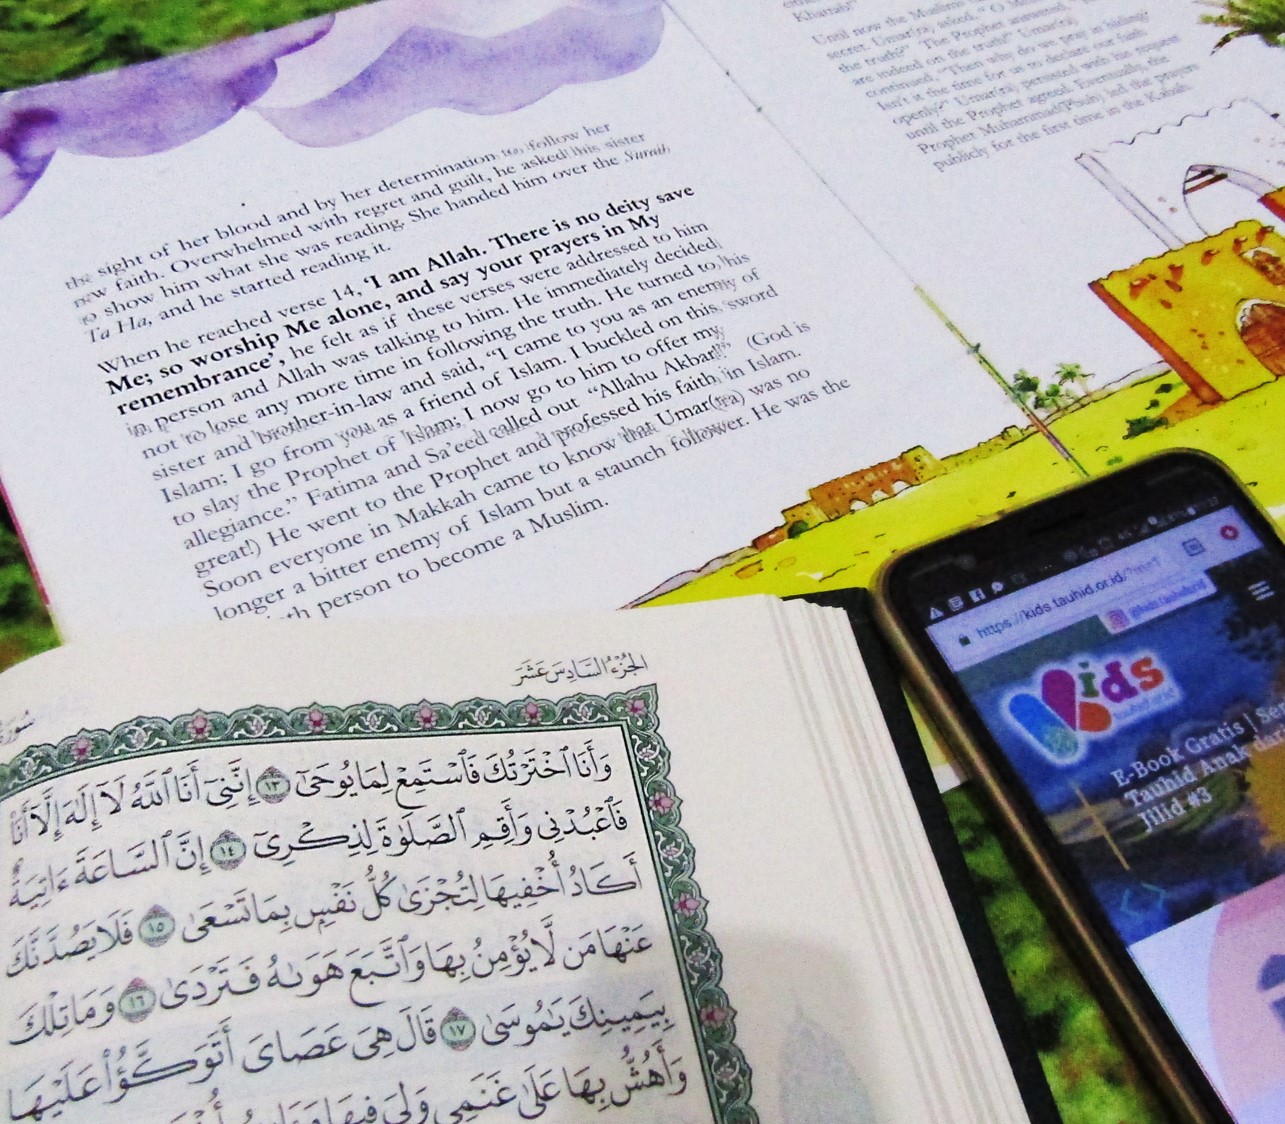 the sight of her blood and by her determination to follow her
new faith. Overwhelmed with regret and guilt, he asked his sister
to show him what she was reading. She handed him over the Surah,
Ta Ha, and he started reading it.
When he reached verse 14, ‘I am Allah. There is no deity save
Me; so worship Me alone, and say your prayers in My
remembrance’, he felt as if these verses were addressed to him
in person and Allah was talking to him. He immediately decided
not to lose any more time in following the truth. He turned to his
sister and brother-in-law and said, “I came to you as an enemy of
Islam; I go from you as a friend of Islam. I buckled on this sword
to slay the Prophet of Islam; I now go to him to offer my
allegiance.” Fatima and Sa’eed called out “Allahu Akbar!” (God is
great!) He went to the Prophet and professed his faith in Islam.
Soon everyone in Makkah came to know that Umar(ra) was no
longer a bitter enemy of Islam but a staunch follower. He was the
person to become a Muslim.
Khattab!”
Until now the Muslims
secret. Umar(ra) asked, “O
the truth?” The Prophet answered,
are indeed on the truth!” Umar(ra)
continued, “Then why do we pray in hiding?
Isn’t it the time for us to declare our faith
openly?” Umar(ra) persisted with his request
until the Prophet agreed. Eventually, the
Prophet Muhammad(Pbuh) led the prayers
publicly for the first time in the Kabah.
الجزء السادس عشر
وَأَنَا ٱخْتَرْتُكَ فَٱسْتَمِعْ لِمَا يُوحَىٰٓ ١٣ إِنَّنِىٓ أَنَا ٱللَّهُ لَآ إِلَٰهَ إِلَّآ أَنَا۠
فَٱعْبُدْنِى وَأَقِمِ ٱلصَّلَوٰةَ لِذِكْرِىٓ ١٤ إِنَّ ٱلسَّاعَةَ ءَاتِيَةٌ
أَكَادُ أُخْفِيهَا لِتُجْزَىٰ كُلُّ نَفْسٍۭ بِمَا تَسْعَىٰ ١٥ فَلَا يَصُدَّنَّكَ
عَنْهَا مَن لَّا يُؤْمِنُ بِهَا وَٱتَّبَعَ هَوَىٰهُ فَتَرْدَىٰ ١٦ وَمَا تِلْكَ
بِيَمِينِكَ يَٰمُوسَىٰ ١٧ قَالَ هِىَ عَصَاىَ أَتَوَكَّؤُا۟ عَلَيْهَا
وَأَهُشُّ بِهَا عَلَىٰ غَنَمِى وَلِىَ فِيهَا
https://kids.tauhid.or.id/?
Kids
E-Book Gratis |
Tauhid Anak
Jilid #3